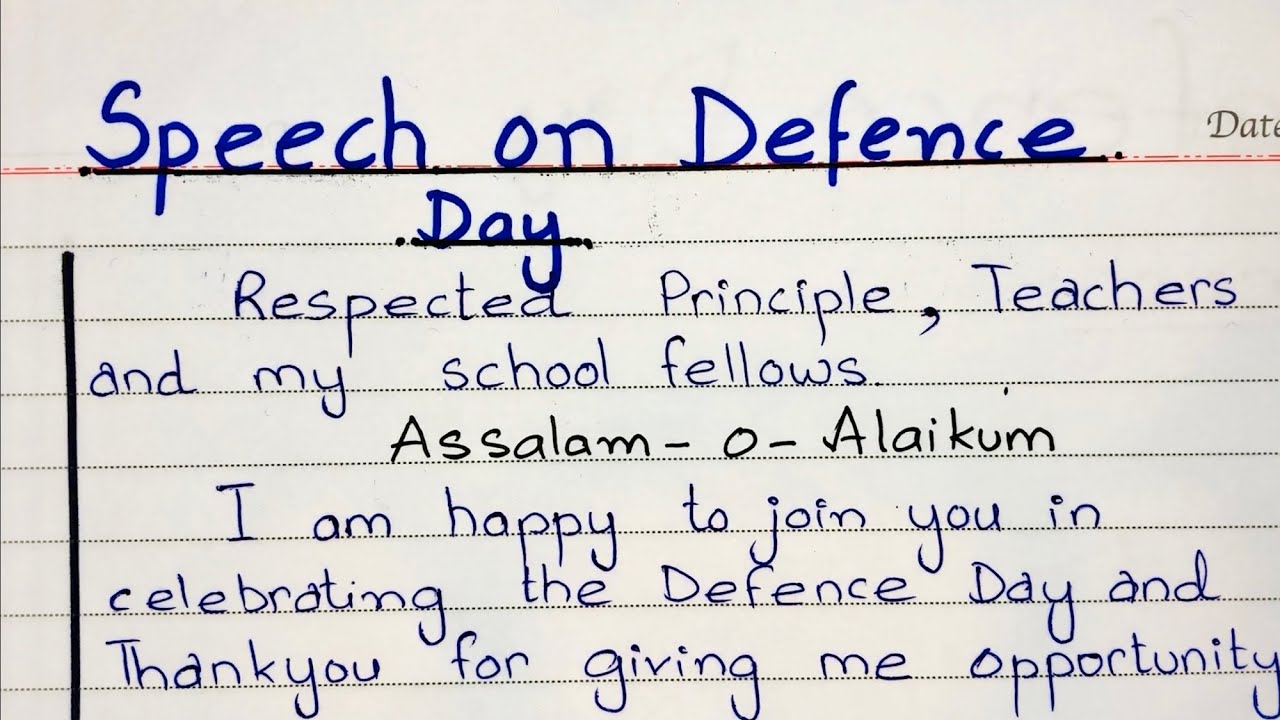 Speech on Defence
Date
Day
Respected Principle, Teachers
and my school fellows.
Assalam-o-Alaikum
I am happy to join you in
celebrating the Defence Day and
Thankyou for giving me opportunity